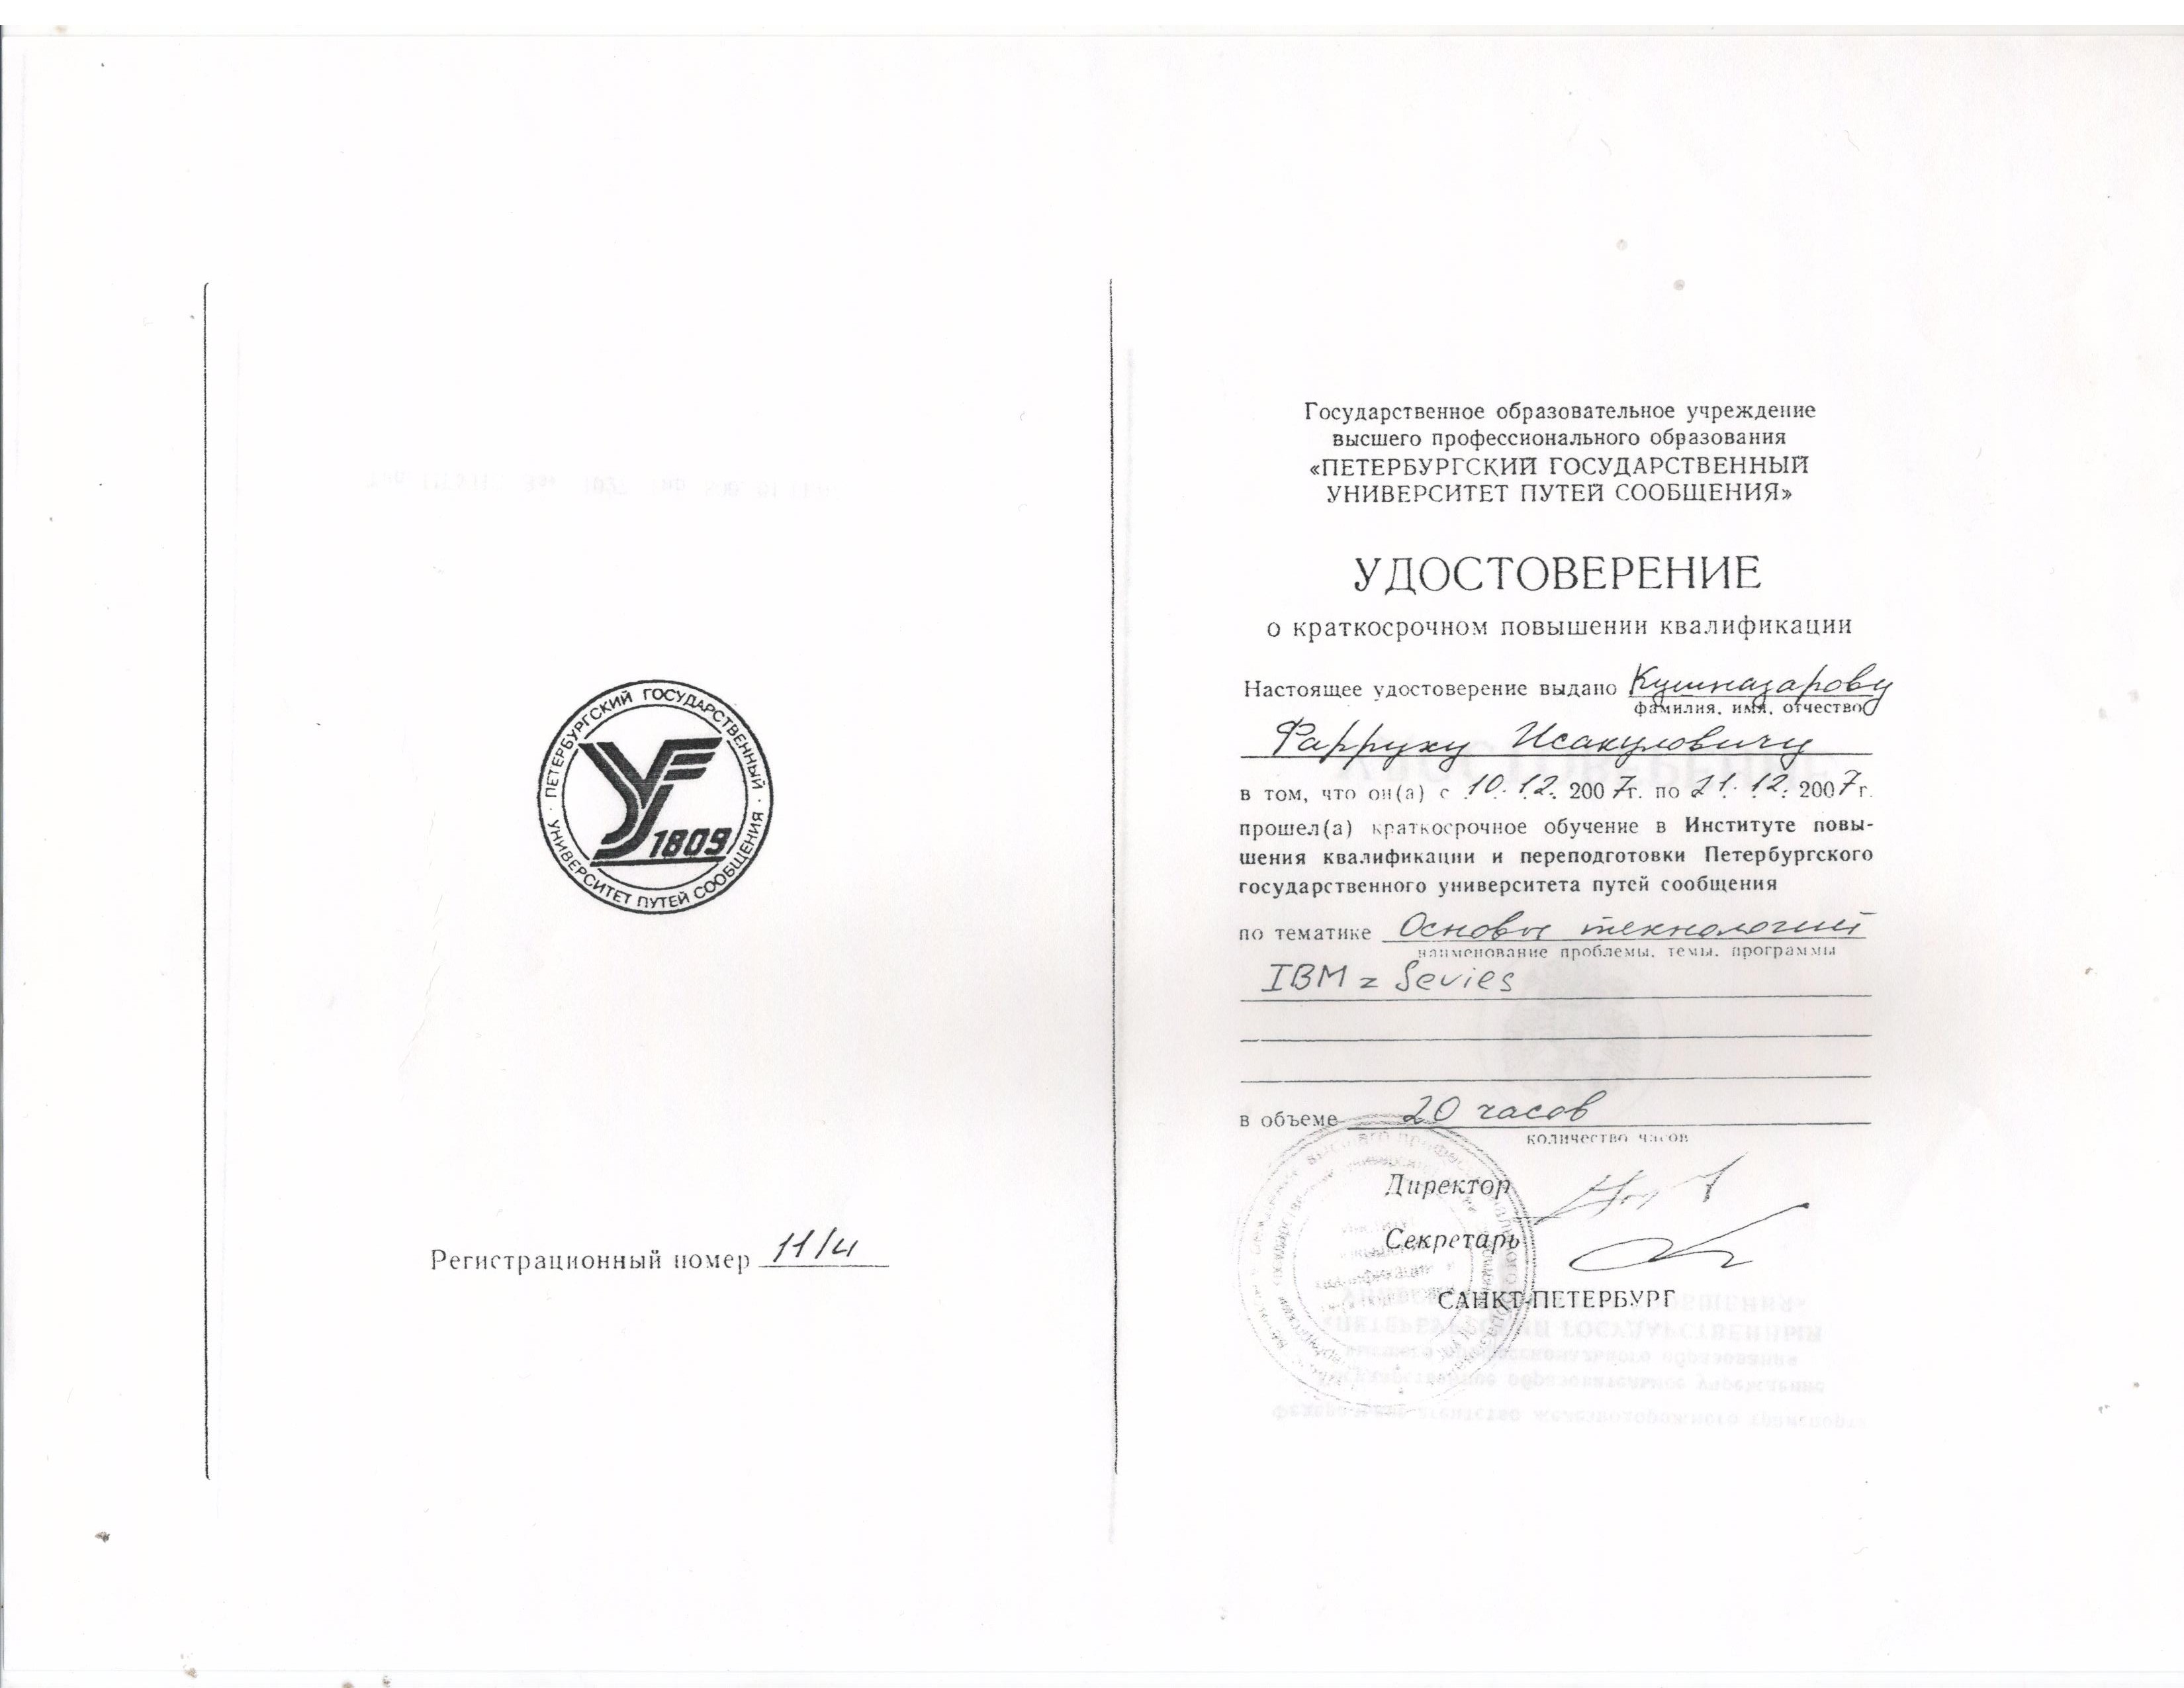 ПЕТЕРБУРГСКИЙ ГОСУДАРСТВЕННЫЙ
УНИВЕРСИТЕТ ПУТЕЙ СООБЩЕНИЯ
1809
Регистрационный номер 11/4
Государственное образовательное учреждение
высшего профессионального образования
«ПЕТЕРБУРГСКИЙ ГОСУДАРСТВЕННЫЙ
УНИВЕРСИТЕТ ПУТЕЙ СООБЩЕНИЯ»
УДОСТОВЕРЕНИЕ
о краткосрочном повышении квалификации
Настоящее удостоверение выдано Кушназарову
фамилия, имя, отчество
Фарруху Исакуловичу
в том, что он(а) с 10.12.2007г. по 21.12.2007г.
прошел(а) краткосрочное обучение в Институте повы-
шения квалификации и переподготовки Петербургского
государственного университета путей сообщения
по тематике Основы технологий
наименование проблемы, темы, программы
IBM z Series
в объеме 20 часов
количество часов
Директор
Секретарь
САНКТ-ПЕТЕРБУРГ